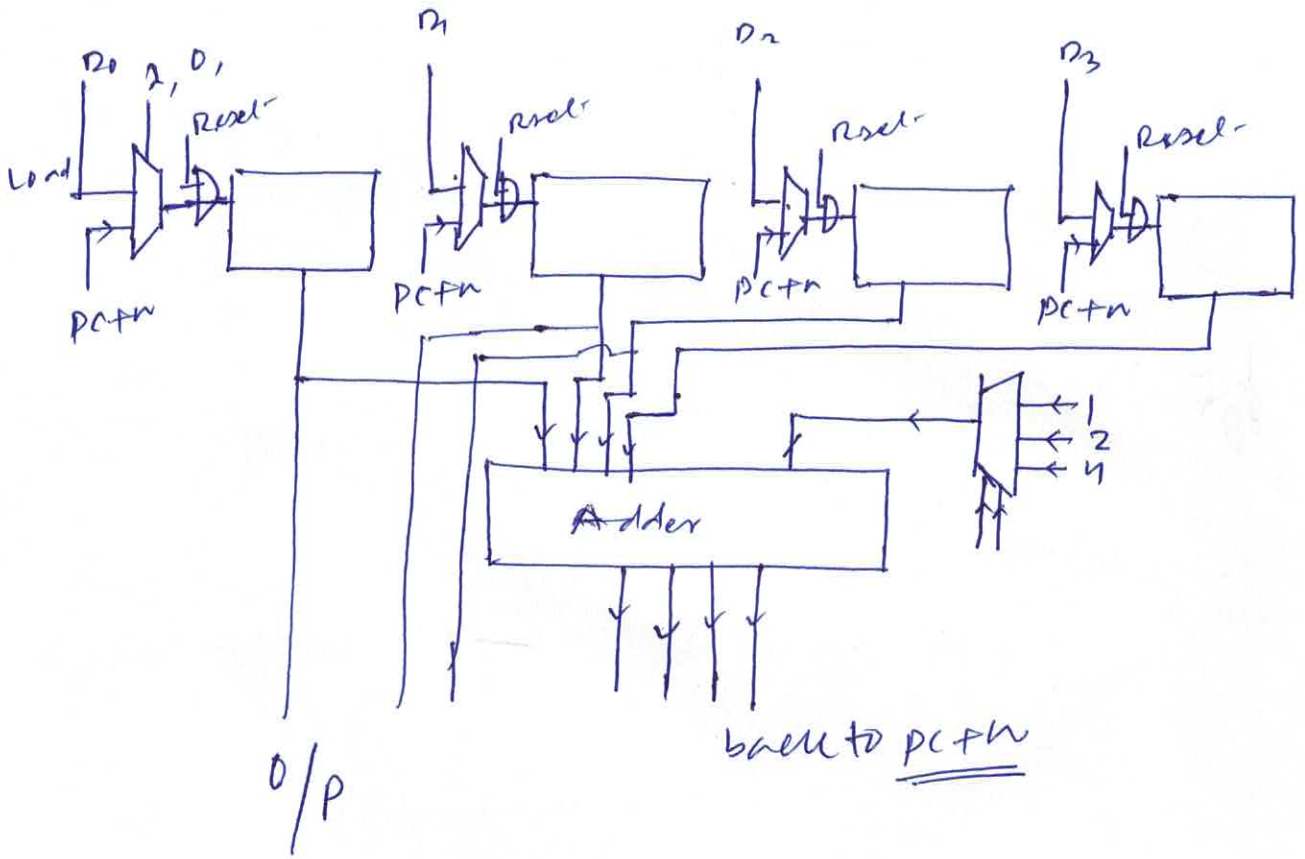 D0
1, 0,
Reset
Load
PC+n
D1
Reset
PC+n
D2
Reset
PC+n
D3
Reset
PC+n
1
2
4
Adder
back to PC+n
O/P